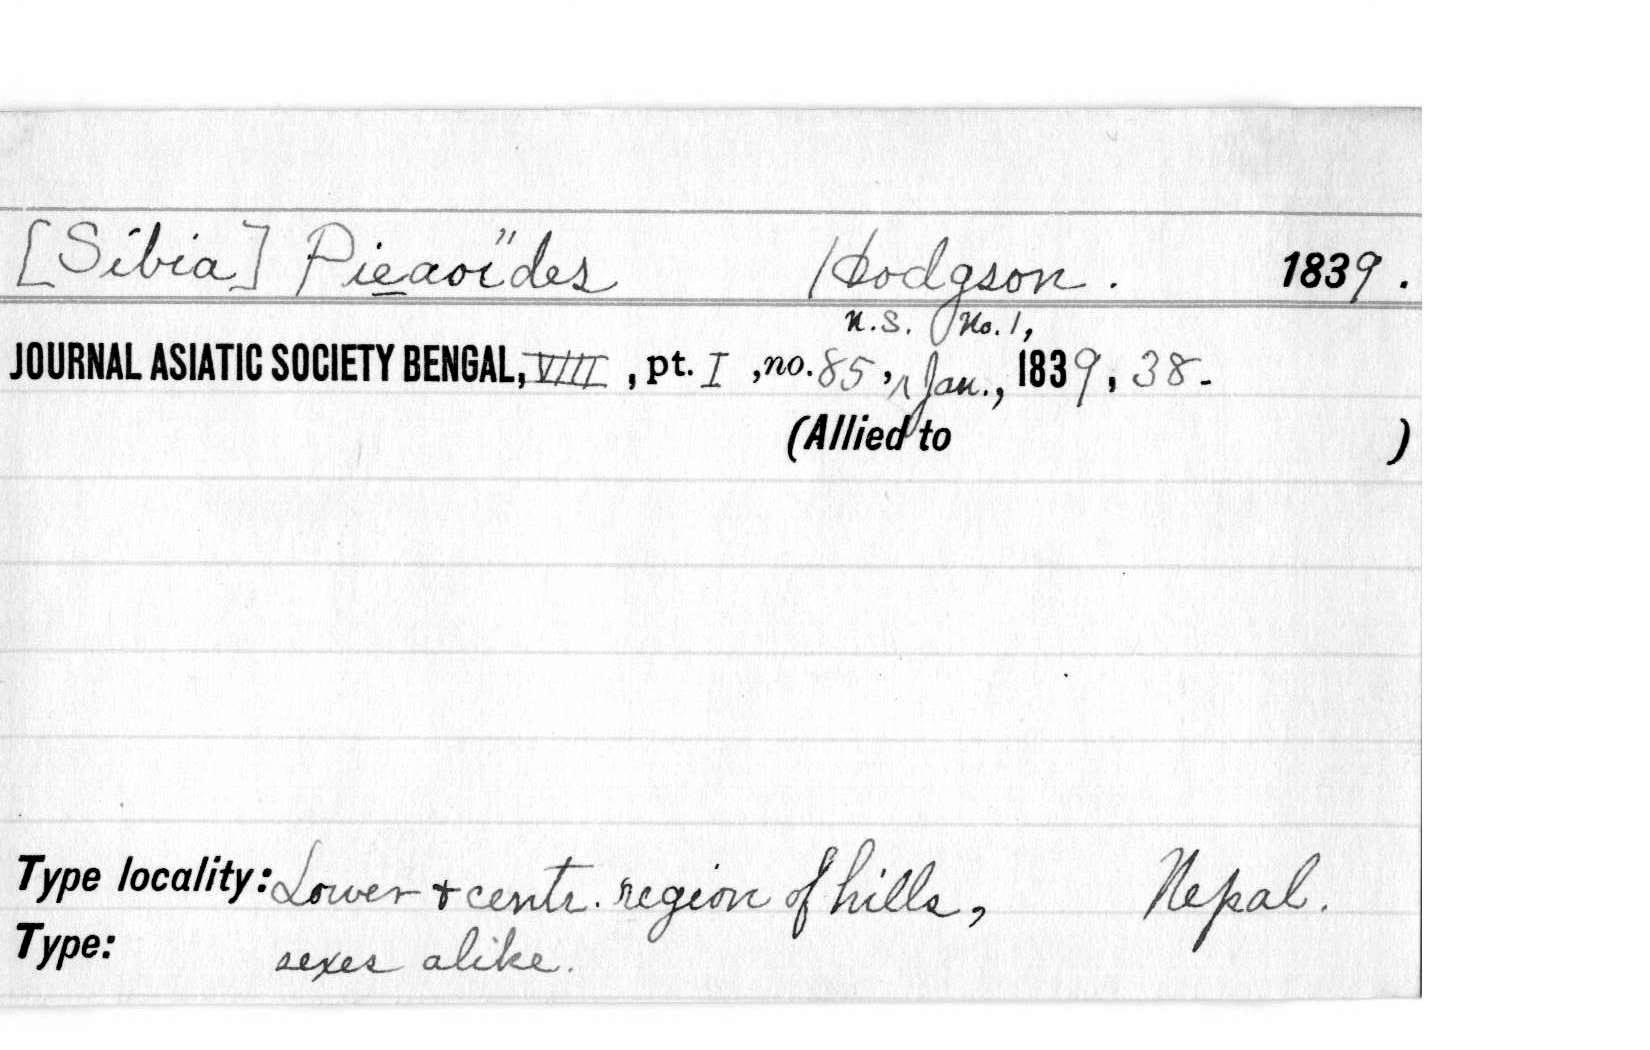 [Sibia] Pieaoïdes" Hodgson. 1839.
n.s. No. 1,
JOURNAL ASIATIC SOCIETY BENGAL, VIII, pt. I, no. 85, Jan., 1839, 38-
(Allied to )
Type locality: Lower + centr. region of hills, Nepal.
Type: sexes alike.